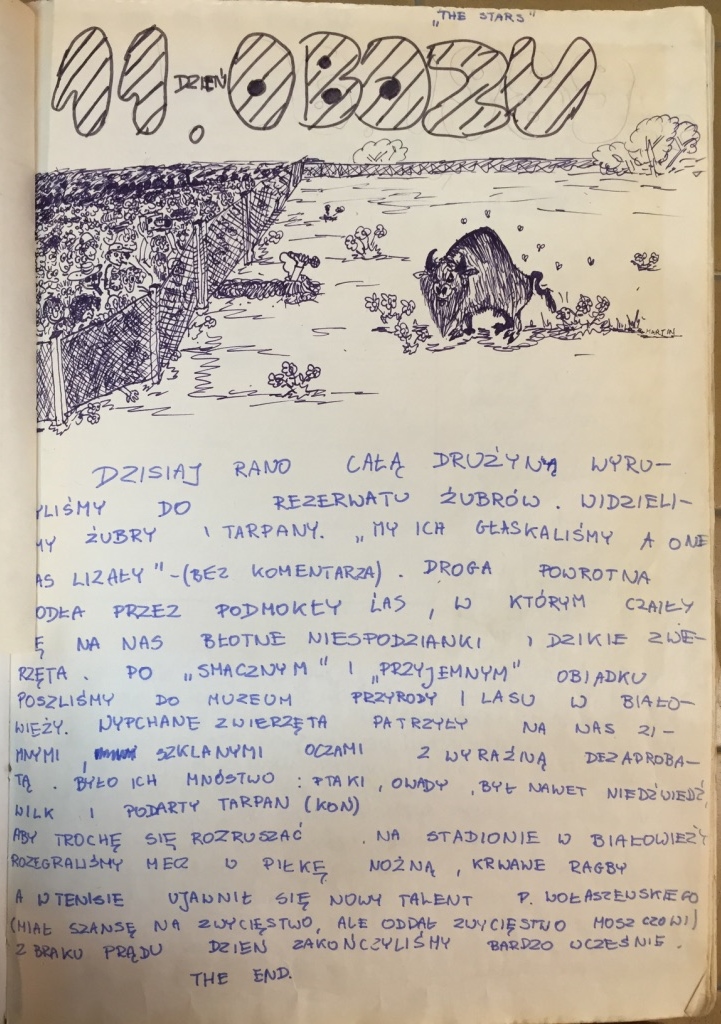 "THE STARS"
11. DZIEŃ OBOZU
MARTIN
DZISIAJ RANO CAŁĄ DRUŻYNĄ WYRU-
YLIŚMY DO REZERWATU ŻUBRÓW. WIDZIELI-
MY ŻUBRY I TARPANY. „MY ICH GŁASKALIŚMY A ONE
AS LIZAŁY" - (BEZ KOMENTARZA). DROGA POWROTNA
ODŁA PRZEZ PODMOKŁY LAS, W KTÓRYM CZAIŁY
Ę NA NAS BŁOTNE NIESPODZIANKI I DZIKIE ZWIE-
RZĘTA. PO „SMACZNYM" I „PRZYJEMNYM" OBIADKU
POSZLIŚMY DO MUZEUM PRZYRODY I LASU W BIAŁO-
WIEŻY. WYPCHANE ZWIERZĘTA PATRZYŁY NA NAS ZI-
MNYMI, SZKLANYMI OCZAMI Z WYRAŹNĄ DEZAPROBA-
TĄ. BYŁO ICH MNÓSTWO: PTAKI, OWADY, BYŁ NAWET NIEDŹWIEDŹ,
WILK I PODARTY TARPAN (KOŃ)
ABY TROCHĘ SIĘ ROZRUSZAĆ . NA STADIONIE W BIAŁOWIEŻY
ROZEGRALIŚMY MECZ W PIŁKĘ NOŻNĄ, KRWAWE RAGBY
A W TENISIE UJAWNIŁ SIĘ NOWY TALENT P. WOŁASZEWSKIEGO
(MIAŁ SZANSĘ NA ZWYCIĘSTWO, ALE ODDAŁ ZWYCIĘSTWO MOSZCZOWI)
Z BRAKU PRĄDU DZIEŃ ZAKOŃCZYLIŚMY BARDZO WCZEŚNIE.
THE END.